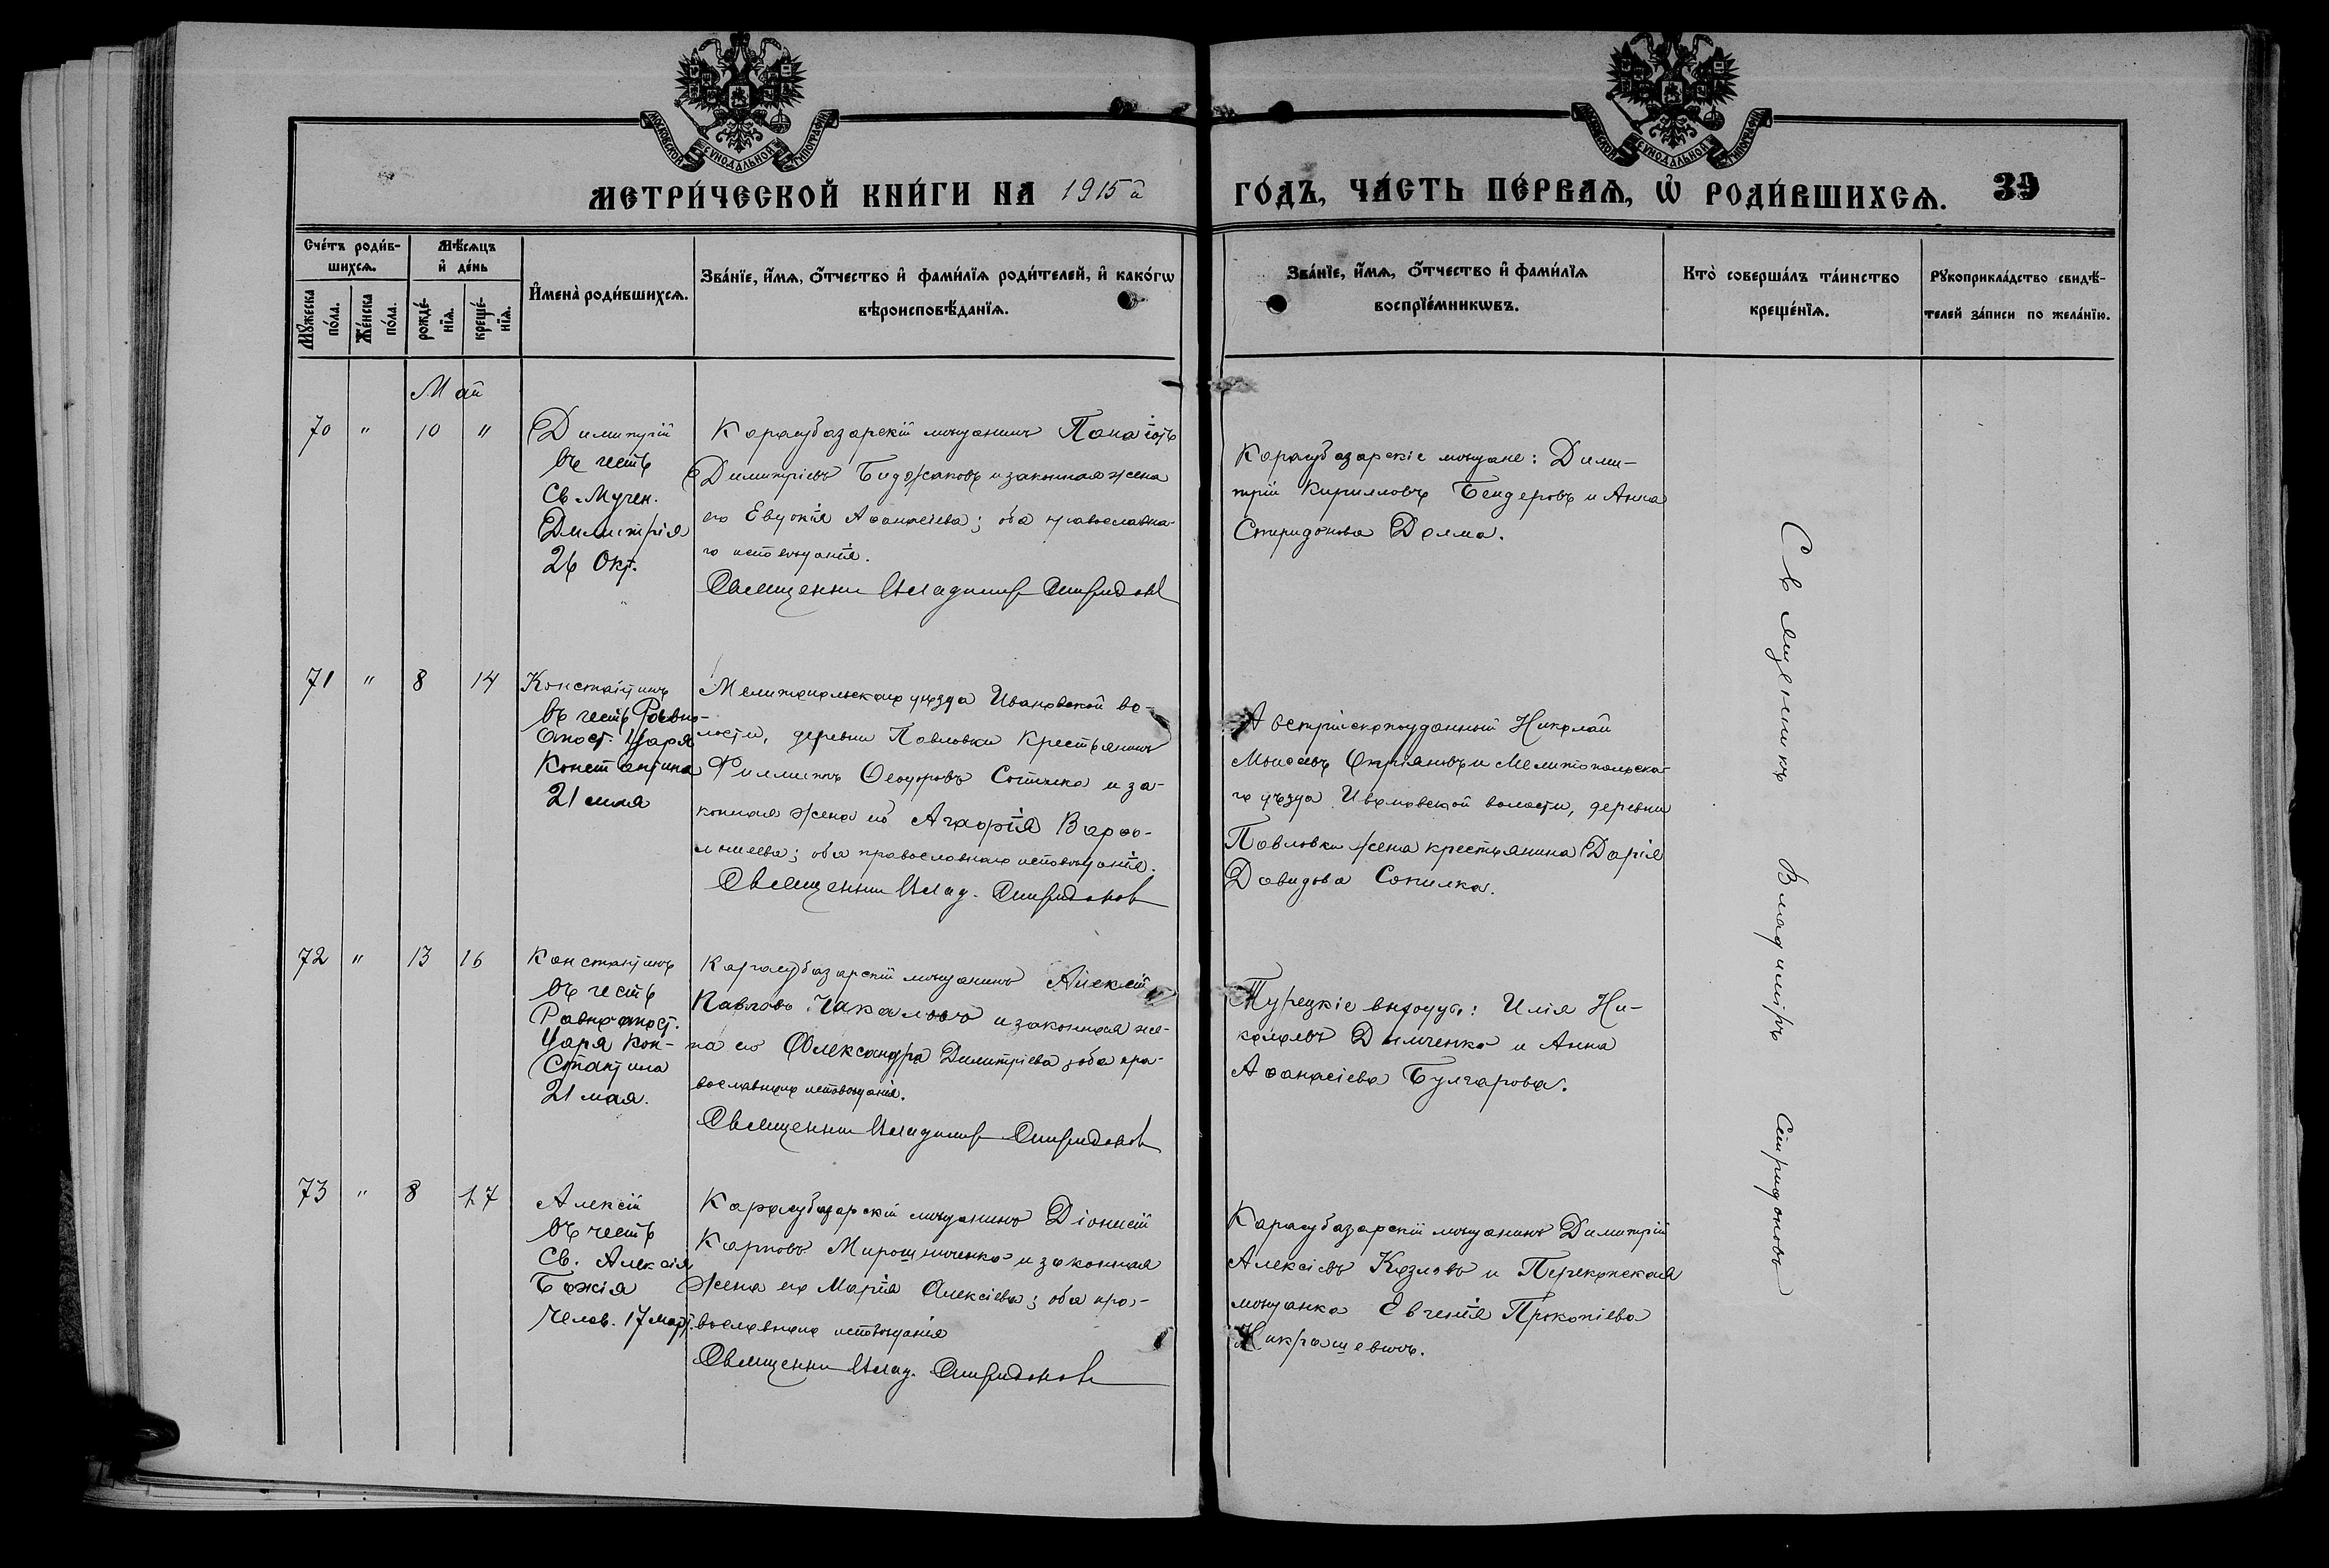 МОСКОВСКОЙ СѴНОДАЛЬНОЙ ТИПОГРАФІИ
МОСКОВСКОЙ СѴНОДАЛЬНОЙ ТИПОГРАФІИ
МЕТРИ́ЧЕСКОЙ КНИ́ГИ НА 1915й
ГО́ДЪ, ЧА́СТЬ ПЕ́РВАѦ, Ѡ҆ РОДИ́ВШИХСѦ. 39
Сче́тъ роди́в-
шихсѧ.
Мѣ́сѧцъ
и҆ де́нь
Мꙋ́жеска
по́ла.
Же́нска
по́ла.
рожде́-
нїѧ.
креще́-
нїѧ.
И҆мена̀ роди́вшихсѧ.
Зва́нїе, и҆́мѧ, ѻ҆́тчество и҆ фами́лїѧ роди́телей, и҆ како́гѡ
вѣроисповѣ́данїѧ.
Зва́нїе, и҆́мѧ, ѻ҆́тчество и҆ фами́лїѧ
воспрїе́мникѡвъ.
Кто̀ соверша́лъ та́инство
креще́нїѧ.
Рꙋкоприкла́дство свидѣ́-
телей за́писи по жела́нїю.
Май
70 " 10 "
Димитрій
въ честь
Св. Мучен.
Димитрія
26 Окт.
Карасубазарскій мѣщанинъ Панаіотъ
Димитріевъ и законная жена
его Евдокія Аѳанасіева; оба православна-
го исповѣданія.
Священник Владимир Спиридонов
Карасубазарскіе мѣщане: Дими-
трій Кирилловъ Бендеровъ и Анна
Спиридонова Долма.
71 " 8 14
Константинъ
въ честь Равно-
апост. Царя
Константина
21 мая
Мелитопольскаго уѣзда Ивановской во-
лости, деревни Павловки крестьянинъ
Филиппъ Ѳеодоровъ Сопилка и за-
конная жена его Агаѳія Варѳо-
ломеева; оба православнаго исповѣданія.
Священник Влад. Спиридонов
Австрійскоподданный Николай
Моисеевъ и Мелитопольска-
го уѣзда Ивановской волости, деревни
Павловки жена крестьянина Дарія
Давидова Сопилка.
72 " 13 16
Константинъ
въ честь
Равноапост.
Царя Кон-
стантина
21 мая.
Карасубазарскій мѣщанинъ Алексій
Павловъ Чакаловъ и законная же-
на его Александра Димитріева; оба пра-
вославнаго исповѣданія.
Священник Владимир Спиридонов
Турецкіе выходцы: Илія Ни-
колаевъ Димченко и Анна
Аѳанасіева Булгарова.
73 " 8 17
Алексій
въ честь
Св. Алексія
Божія
Челов. 17 март.
Карасубазарскій мѣщанинъ Діонисій
Карповъ Мирошниченко и законная
жена его Марія Алексіева; оба пра-
вославнаго исповѣданія
Священник Влад. Спиридонов
Карасубазарскій мѣщанинъ Димитрій
Алексіевъ Козловъ и Перекопская
мѣщанка Евгенія Прокопіева
Священникъ Владиміръ Спиридоновъ